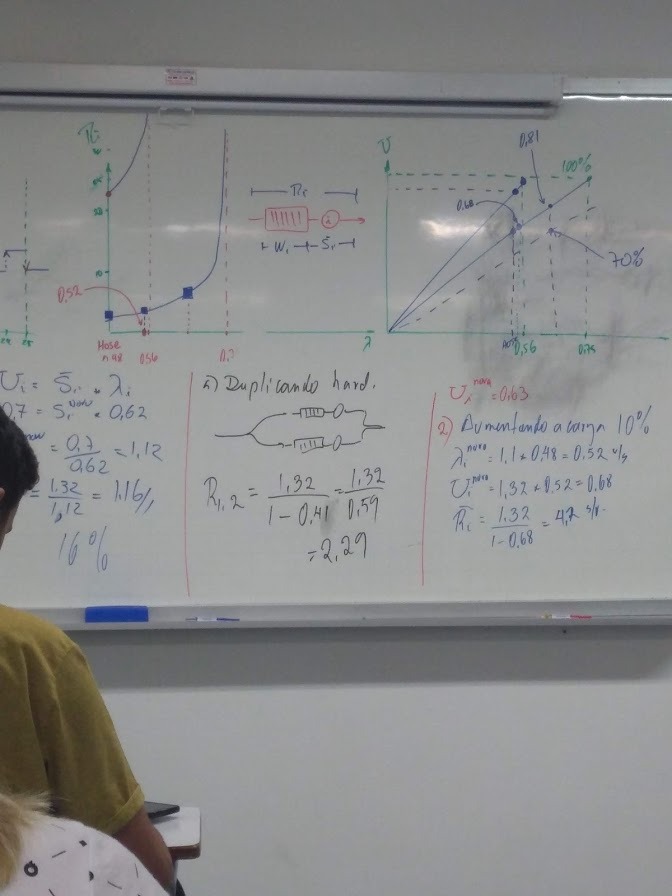 Ri
0,52
Hose
0,48
0,56
0,7
λ
Ri
λ
Wi
Si
U
0,81
100%
0,68
70%
0,56
0,75
Ui = Si * λi
0,7 = Si * 0,62
= 0,7 / 0,62 = 1,12
= 1.32 / 1,12 = 1,16
16%
Duplicando hard.
R1,2 = 1,32 / 1 - 0,41 = 1,32 / 0,59
= 2,29
Ui novo = 0,63
2) Aumentando a carga 10%
λi novo = 1,1 * 0,48 = 0,52
Ui novo = 1,32 * 0,52 = 0,68
Ri = 1,32 / 1 - 0,68 = 4,2